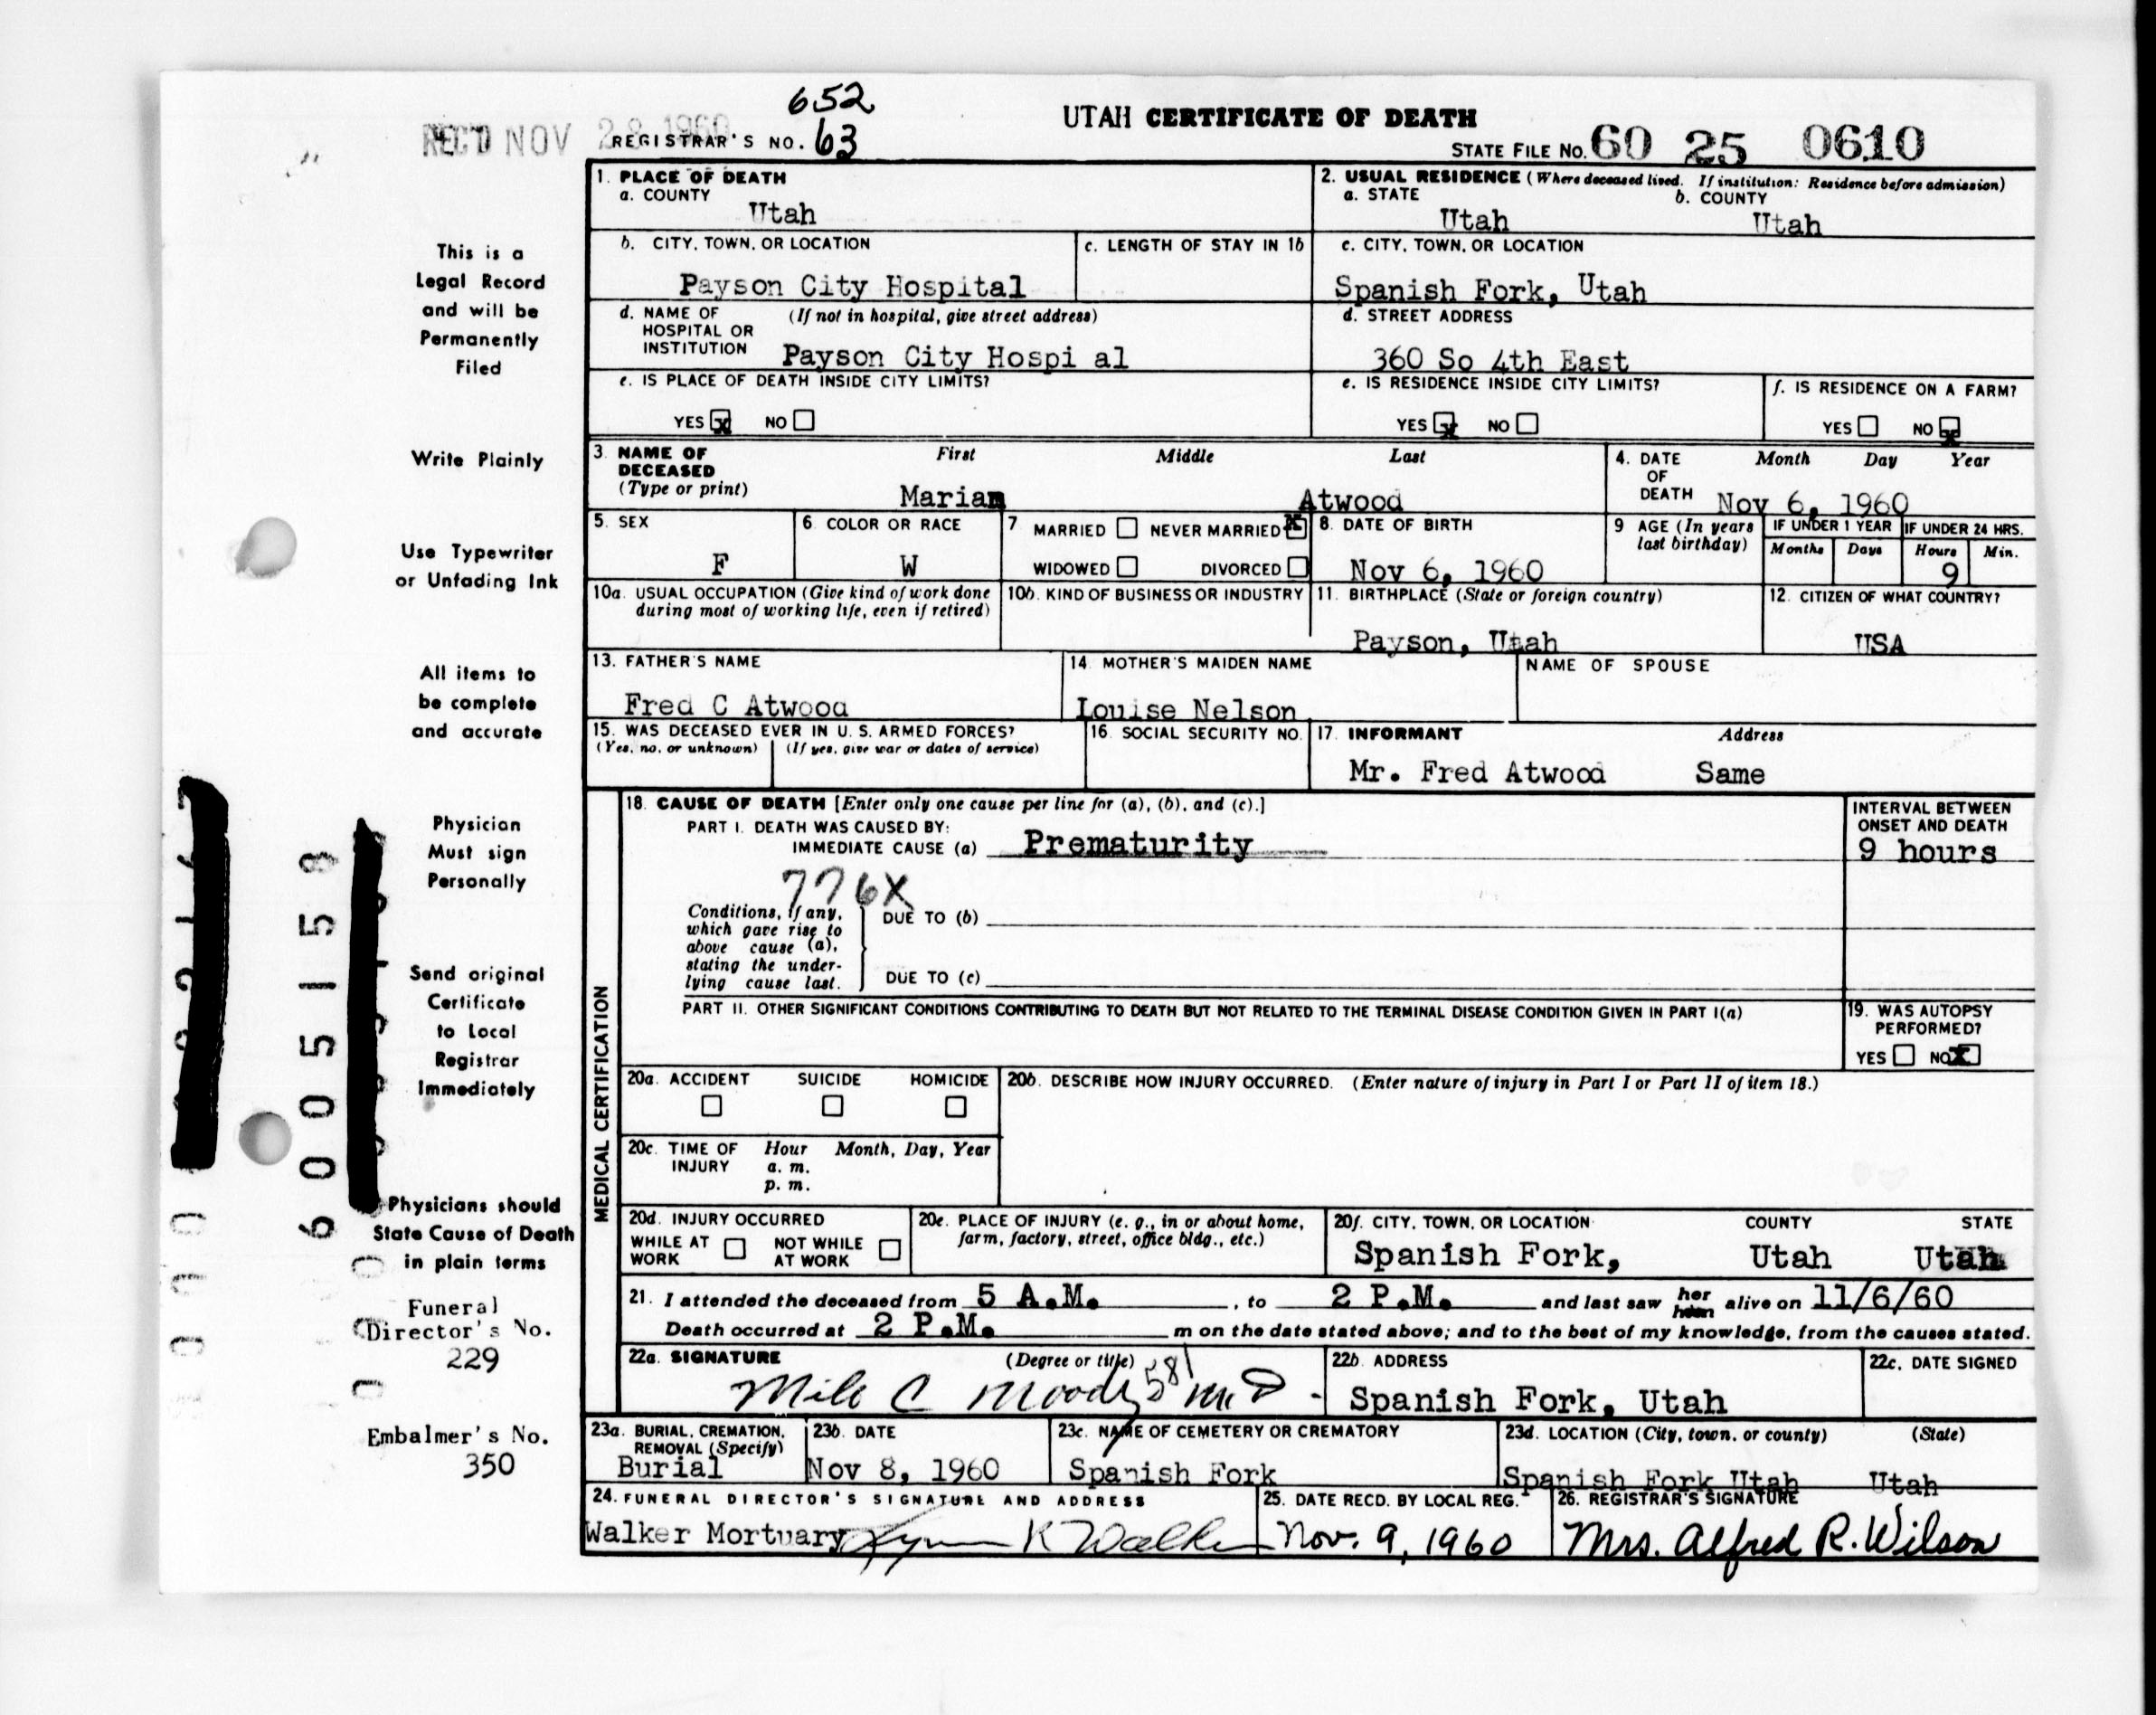 652
UTAH CERTIFICATE OF DEATH
REC'D NOV 28 1960
REGISTRAR'S NO. 63
STATE FILE NO. 60 25 0610
This is a
Legal Record
and will be
Permanently
Filed
Write Plainly
Use Typewriter
or Unfading Ink
All items to
be complete
and accurate
Physician
Must sign
Personally
Send original
Certificate
to Local
Registrar
Immediately
Physicians should
State Cause of Death
in plain terms
Funeral
Director's No.
229
Embalmer's No.
350
6005158
1. PLACE OF DEATH
a. COUNTY
Utah
2. USUAL RESIDENCE (Where deceased lived. If institution: Residence before admission)
a. STATE b. COUNTY
Utah Utah
b. CITY, TOWN, OR LOCATION
Payson City Hospital
c. LENGTH OF STAY IN 1b
c. CITY, TOWN, OR LOCATION
Spanish Fork, Utah
d. NAME OF (If not in hospital, give street address)
HOSPITAL OR
INSTITUTION Payson City Hospi al
d. STREET ADDRESS
360 So 4th East
e. IS PLACE OF DEATH INSIDE CITY LIMITS?
YES x NO
e. IS RESIDENCE INSIDE CITY LIMITS?
YES x NO
f. IS RESIDENCE ON A FARM?
YES NO x
3. NAME OF First Middle Last
DECEASED
(Type or print) Mariam Atwood
4. DATE Month Day Year
OF
DEATH Nov 6, 1960
5. SEX
F
6. COLOR OR RACE
W
7 MARRIED NEVER MARRIED x
WIDOWED DIVORCED
8. DATE OF BIRTH
Nov 6, 1960
9 AGE (In years
last birthday)
IF UNDER 1 YEAR IF UNDER 24 HRS.
Months Days Hours Min.
9
10a. USUAL OCCUPATION (Give kind of work done
during most of working life, even if retired)
10b. KIND OF BUSINESS OR INDUSTRY
11. BIRTHPLACE (State or foreign country)
Payson, Utah
12. CITIZEN OF WHAT COUNTRY?
USA
13. FATHER'S NAME
Fred C Atwood
14. MOTHER'S MAIDEN NAME
Louise Nelson
NAME OF SPOUSE
15. WAS DECEASED EVER IN U. S. ARMED FORCES?
(Yes, no, or unknown) (If yes, give war or dates of service)
16. SOCIAL SECURITY NO.
17. INFORMANT Address
Mr. Fred Atwood Same
MEDICAL CERTIFICATION
18. CAUSE OF DEATH [Enter only one cause per line for (a), (b), and (c).]
PART I. DEATH WAS CAUSED BY:
IMMEDIATE CAUSE (a) Prematurity
INTERVAL BETWEEN
ONSET AND DEATH
9 hours
776X
Conditions, if any,
which gave rise to
above cause (a),
stating the under-
lying cause last.
DUE TO (b)
DUE TO (c)
PART II. OTHER SIGNIFICANT CONDITIONS CONTRIBUTING TO DEATH BUT NOT RELATED TO THE TERMINAL DISEASE CONDITION GIVEN IN PART I(a)
19. WAS AUTOPSY
PERFORMED?
YES NO x
20a. ACCIDENT SUICIDE HOMICIDE
20b. DESCRIBE HOW INJURY OCCURRED. (Enter nature of injury in Part I or Part II of item 18.)
20c. TIME OF Hour Month, Day, Year
INJURY a. m.
p. m.
20d. INJURY OCCURRED
WHILE AT NOT WHILE
WORK AT WORK
20e. PLACE OF INJURY (e. g., in or about home,
farm, factory, street, office bldg., etc.)
20f. CITY, TOWN, OR LOCATION COUNTY STATE
Spanish Fork, Utah Utah
21. I attended the deceased from 5 A.M. , to 2 P.M. and last saw her him alive on 11/6/60
Death occurred at 2 P.M. m on the date stated above; and to the best of my knowledge, from the causes stated.
22a. SIGNATURE (Degree or title)
Milo C Moody MD 581
22b. ADDRESS
Spanish Fork, Utah
22c. DATE SIGNED
23a. BURIAL, CREMATION,
REMOVAL (Specify)
Burial
23b. DATE
Nov 8, 1960
23c. NAME OF CEMETERY OR CREMATORY
Spanish Fork
23d. LOCATION (City, town, or county) (State)
Spanish Fork Utah Utah
24. FUNERAL DIRECTOR'S SIGNATURE AND ADDRESS
Walker Mortuary Lynn K Walker
25. DATE RECD. BY LOCAL REG.
Nov. 9, 1960
26. REGISTRAR'S SIGNATURE
Mrs. Alfred R. Wilson